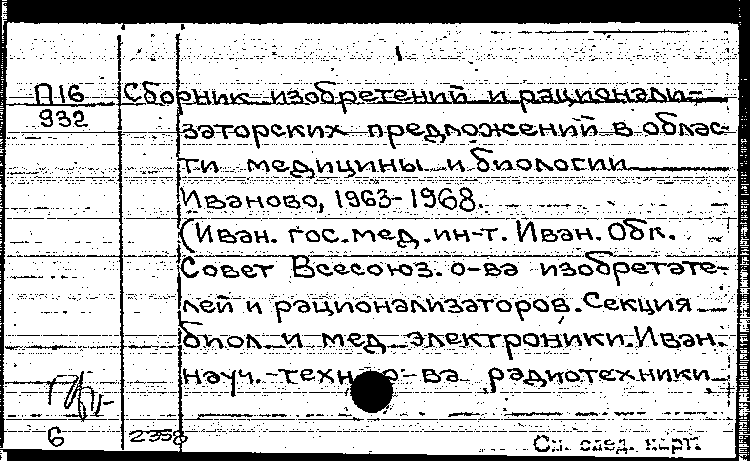 П16 Сборник изобретений и рационали-
932 заторских предложений в облас-
ти медицины и биологии
Иваново, 1963-1968.
(Иван. гос. мед. ин-т. Иван. Обл.
Совет Всесоюз. о-ва изобретате-
лей и рационализаторов. Секция
биол. и мед. электроники. Иван.
науч.-техн. о-ва радиотехники
6 2358 См. след. карт